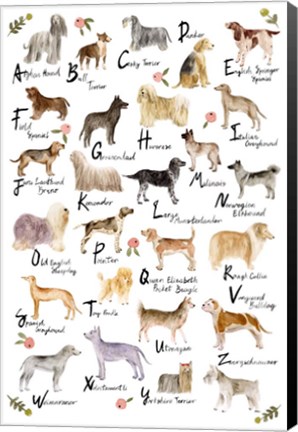 A
Afghan Hound
B
Bull
Terrier
C
Cesky Terrier
D
Dandie
E
English Springer
Spaniel
F
Field
Spaniel
G
Groenendael
H
Havanese
I
Italian
Greyhound
J
K
Komondor
L
Large
Munsterlander
M
Malinois
N
Norwegian
Elkhound
O
Old English
Sheepdog
P
Pointer
Q
Queen Elizabeth
Pocket Beagle
R
Rough Collie
S
Spanish
Greyhound
T
Toy Poodle
U
Utonagan
V
Bulldog
W
Weimaraner
X
Xoloitzcuintli
Y
Yorkshire Terrier
Z
Zwergschnauzer